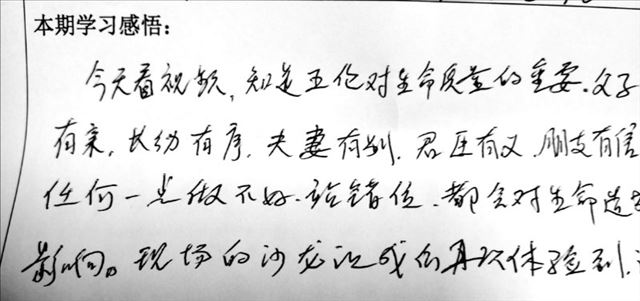 本期学习感悟：
今天看视频，知道五伦对生命质量的重要。父子
有亲，长幼有序，夫妻有别，君臣有义，朋友有信
任何一点做不好，站错位，都会对生命造
影响。现场的沙龙让我们再次体验到，